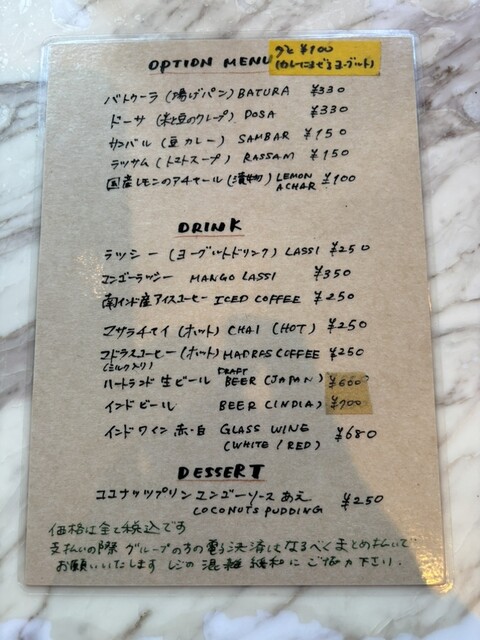 OPTION MENU
¥100
(カレーにまぜるヨーグルト)
バトゥーラ (揚げパン) BATURA ¥330
ドーサ (米と豆のクレープ) DOSA ¥330
サンバル (豆カレー) SAMBAR ¥150
ラッサム (トマトスープ) RASSAM ¥150
国産レモンのアチャール (漬物) LEMON ACHAR ¥100
DRINK
ラッシー (ヨーグルトドリンク) LASSI ¥250
マンゴーラッシー MANGO LASSI ¥350
南インド産アイスコーヒー ICED COFFEE ¥250
マサラチャイ (ホット) CHAI (HOT) ¥250
マドラスコーヒー (ホット) MADRAS COFFEE ¥250
(ミルク入り)
ハートランド 生ビール DRAFT BEER (JAPAN) ¥600
インドビール BEER (INDIA) ¥700
インドワイン 赤・白 GLASS WINE ¥680
(WHITE / RED)
DESSERT
ココナッツプリン マンゴーソースあえ ¥250
COCONUTS PUDDING
価格は全て税込です
支払いの際 グループの方の電子決済はなるべくまとめ払いで
お願いいたします レジの混雑緩和にご協力下さい。